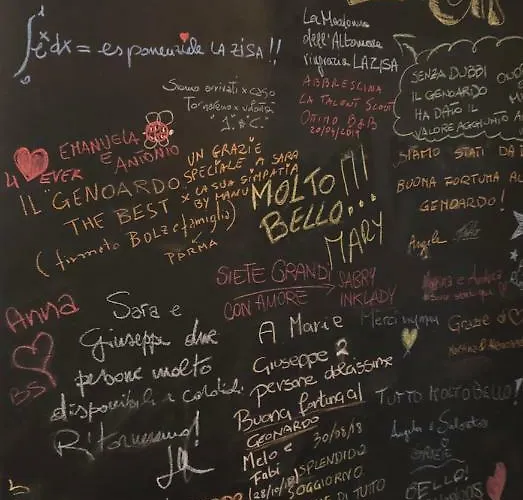 ∫eˣdx = esponenziale LA ZISA !!
La Madonna
dell'Altomare
ringrazia LA ZISA
ABBRESCIMA
LA TALENT SCOUT
OTTIMO B&B
20/04/2019
Siamo arrivati x caso
Torneremo x volontà
SENZA DUBBI
IL GENOARDO
HA DATO IL
VALORE AGGIUNTO
4 EVER
EMANUELA
E
ANTONIO
UN GRAZIE
SPECIALE A SARA
X LA SUA SIMPATIA
BY MANU
IL "GENOARDO"
THE BEST
(firmato Bolzc famiglia)
PARMA
MOLTO
BELLO...!!!
MARY
SIAMO STATI DA
BUONA FORTUNA AL
GENOARDO!
Angela
SIETE GRANDI
CON AMORE
SABRY
INKLADY
Anna
BS
Sara e
Giuseppe due
persone molto
disponibili e cordiali
Ritorneremo!
A Marie
Giuseppe 2
persone dolcissime
Buona fortuna al
GEONARDO
Melo e
Fabi
30/08/18
SPLENDIDO
SOGGIORNO
TUTTO
Merci
Grazie di
TUTTO MOLTO BELLO!
Angela e Salvatore
SIETE